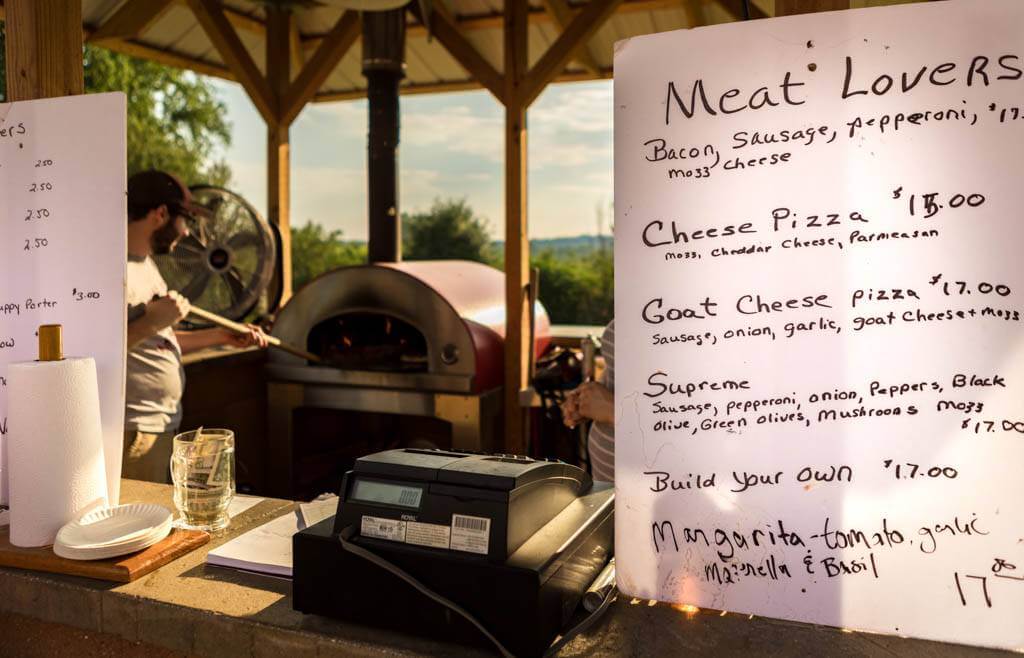 ers
2.50
2.50
2.50
2.50
uppy Porter $3.00
ow
Meat Lovers
Bacon, Sausage, Pepperoni, $17.
mozz cheese
Cheese Pizza $15.00
mozz, Cheddar Cheese, Parmesan
Goat Cheese pizza $17.00
Sausage, onion, garlic, goat Cheese + mozz
Supreme
Sausage, pepperoni, onion, Peppers, Black
olive, Green olives, Mushrooms mozz
$17.00
Build your own $17.00
Margarita - tomato, garlic
& Basil
17.00
ROYAL
000